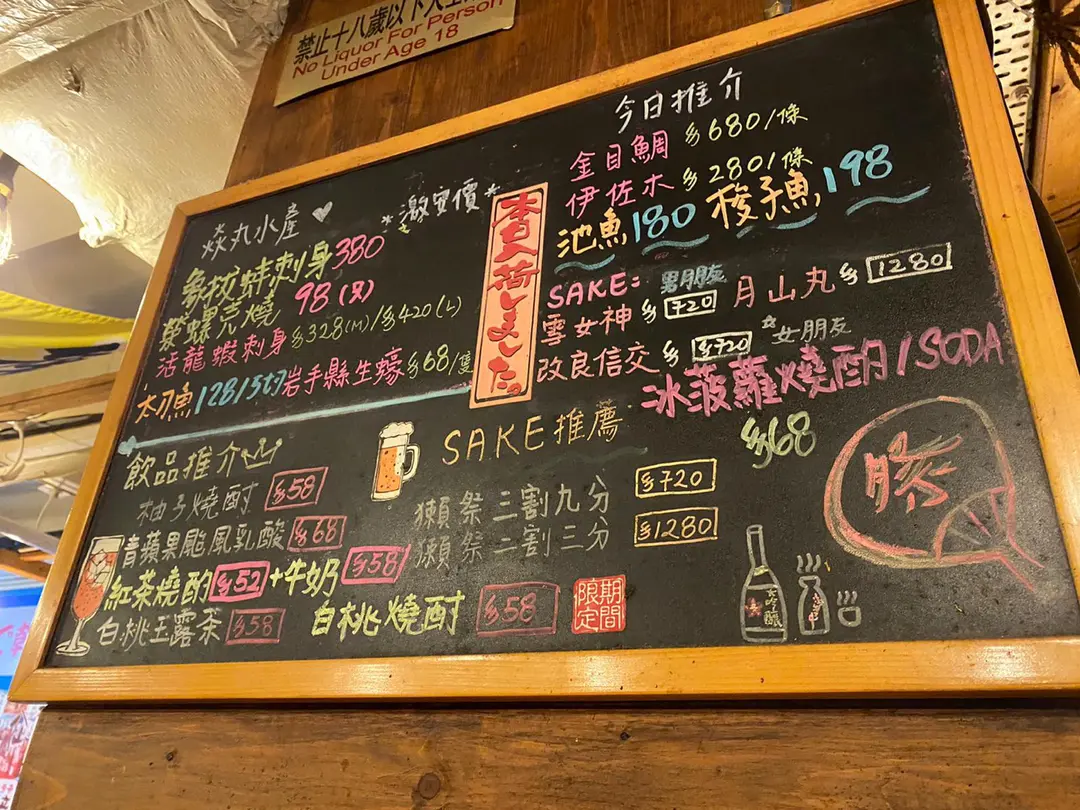 禁止十八歲以下人士
No Liquor For Person
Under Age 18
焱丸水產
*激安價*
象拔蚌刺身380
榮螺壳燒 98(只)
活龍蝦刺身 $328(M)/$420(L)
太刀魚128/5切 岩手縣生蠔 $68/隻
本日入荷しました。
今日推介
金目鯛 $680/條
伊佐木 $280/條
池魚180 梭子魚198
SAKE: 男朋友
雪女神 $720 月山丸 $1280
改良信交 $720 *女朋友
冰菠蘿燒酌/SODA
$68
飲品推介
柚子燒酎 $58
青蘋果颱風乳酸 $68
紅茶燒酌 $52 +牛奶 $58
白桃玉露茶 $58 白桃燒酎 $58
SAKE推薦
獺祭 三割九分 $720
獺祭 二割三分 $1280
期間
限定
勝
大吟釀